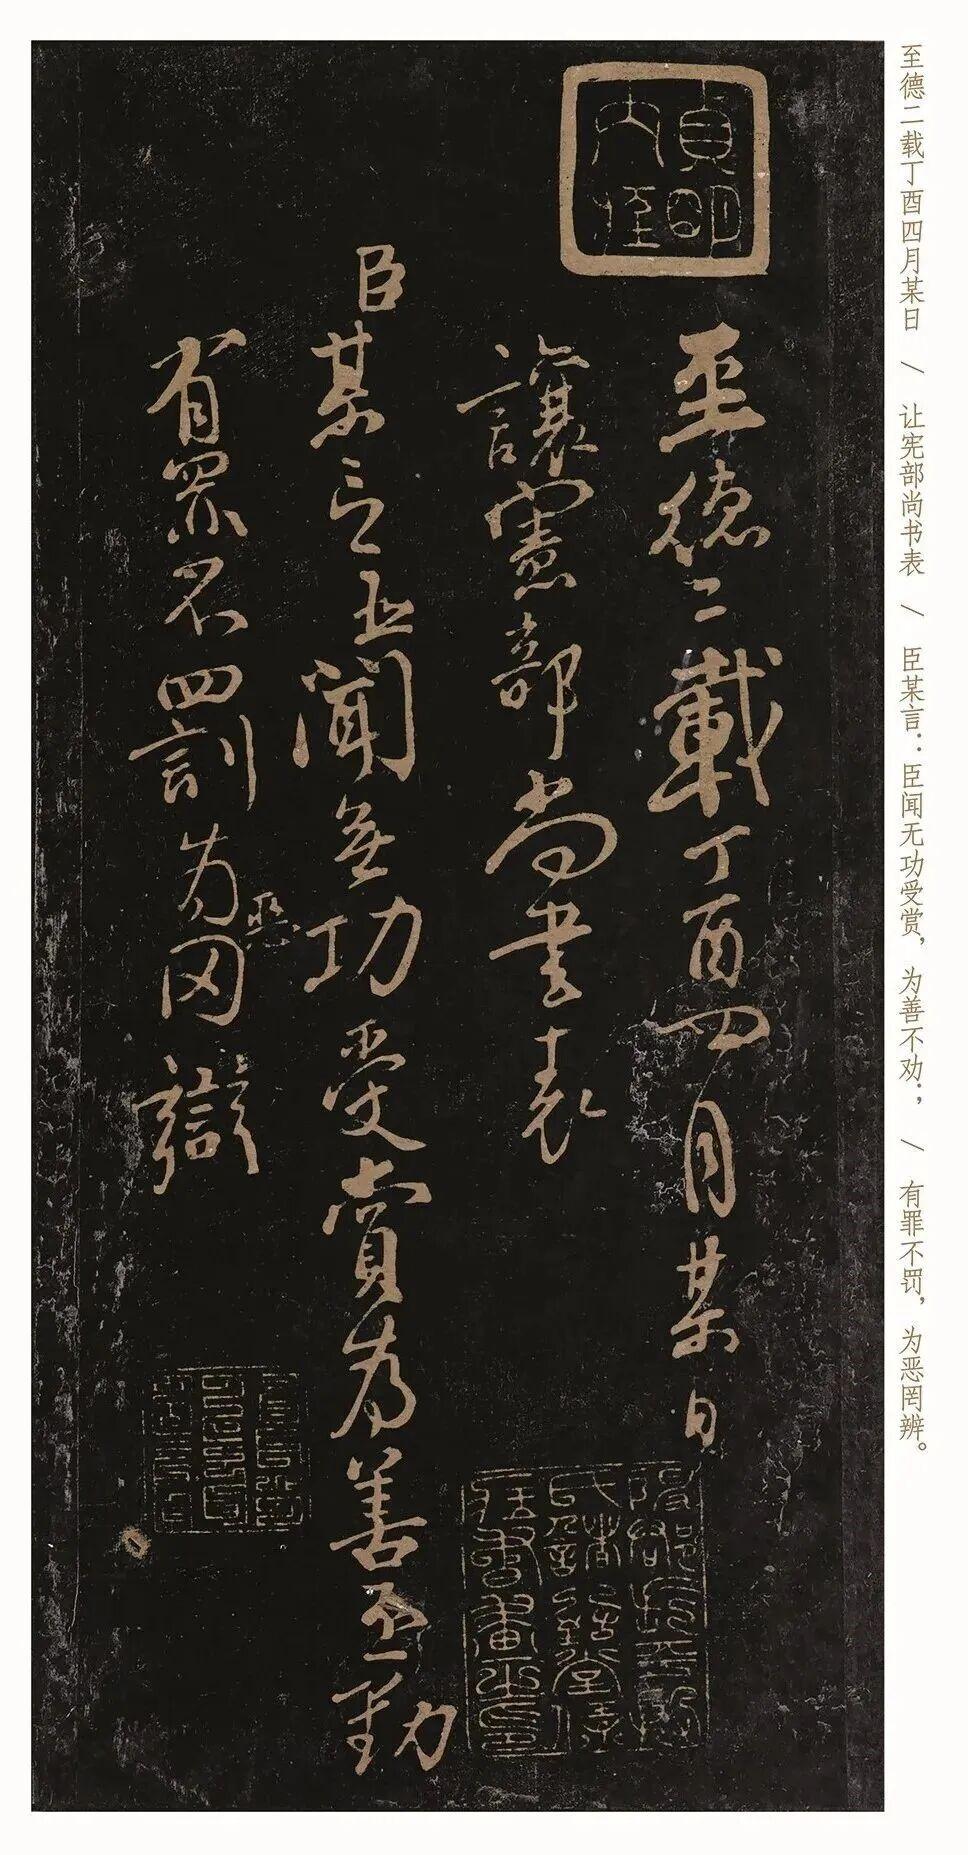 至德二载丁酉四月某日 / 让宪部尚书表 / 臣某言：臣闻无功受赏，为善不劝； / 有罪不罚，为恶罔辨。
貞
內
至德二載丁酉四月某日
讓憲部尚書表
臣某言臣聞無功受賞為善不勸
有罪不罰為惡罔辯